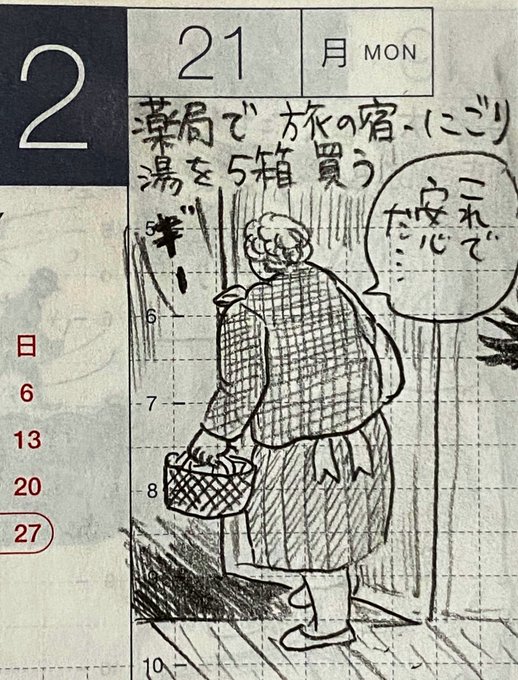 2
21
月 MON
薬局で 旅の宿、にごり
湯を5箱 買う
これで
安心
だ……
ギー
5
6
7
8
9
10
日
6
13
20
27